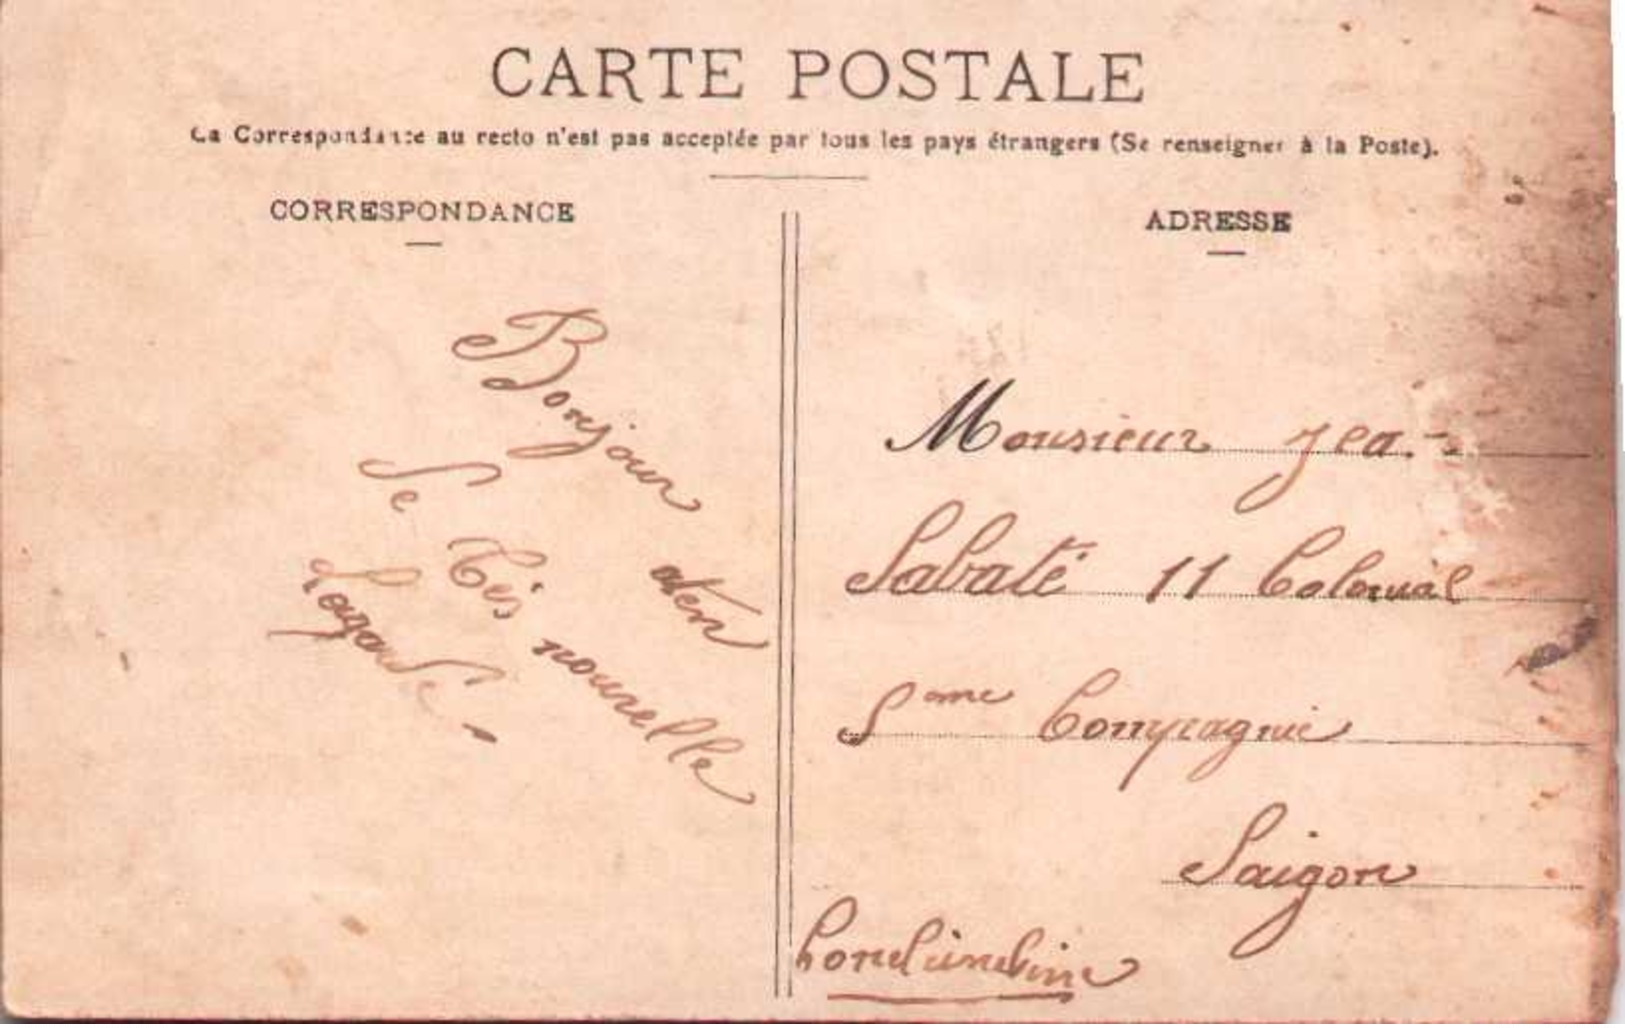 CARTE POSTALE
La Correspondance au recto n'est pas acceptée par tous les pays étrangers (Se renseigner à la Poste).
CORRESPONDANCE
Bonjour aten
de Tés nouvelle
Lagarde
ADRESSE
Monsieur Jea
Sabaté 11 Colonial
5ome Compagnie
Saigon